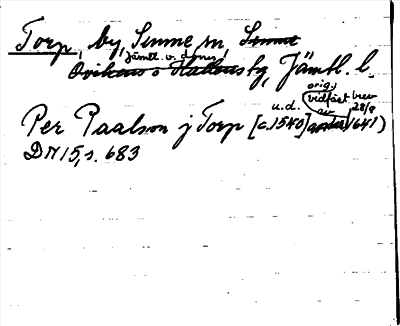 Torp, by, Sunne sn, Sunne
Jämtl. v. domsaga,
Ovikens o Hallens tg, Jämtl. l.
orig.
u.d. vidfäst brev
av 28/9
Per Paalson j Torp [c. 1540] 1641)
DN 15, s. 683